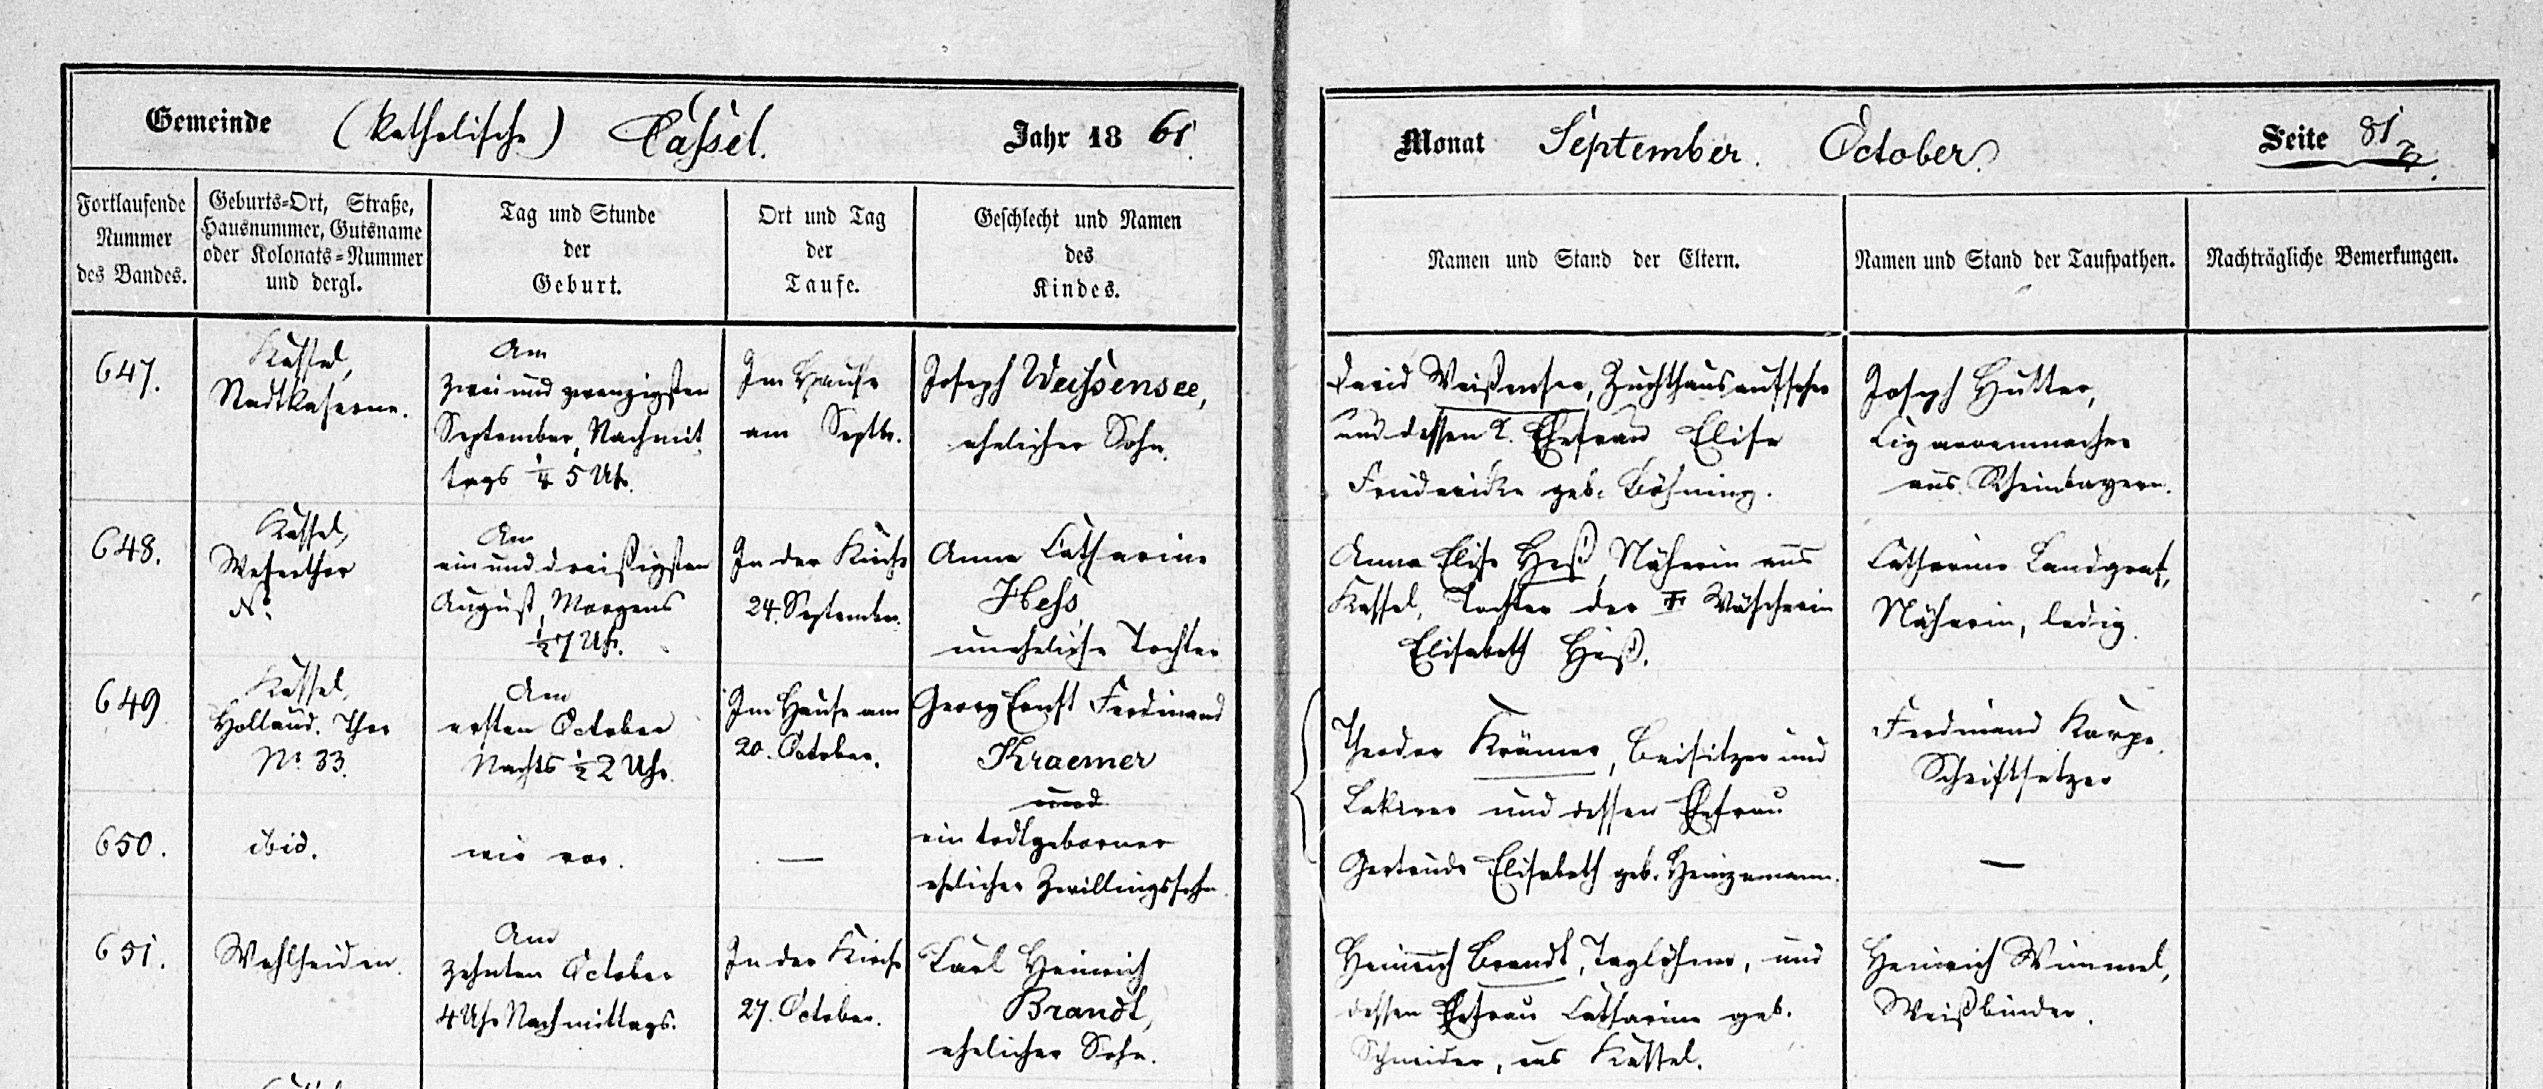 Gemeinde (katholische) Cassel. Jahr 18 61.
Monat September. October. Seite 81
Fortlaufende
Nummer
des Bandes.
Geburts=Ort, Straße,
Hausnummer, Gutsname
oder Kolonats=Nummer
und dergl.
Tag und Stunde
der
Geburt.
Ort und Tag
der
Taufe.
Geschlecht und Namen
des
Kindes.
Namen und Stand der Eltern.
Namen und Stand der Taufpathen.
Nachträgliche Bemerkungen.
647.
Kassel,
Stadtkaserne.
Am
zwei und zwanzigsten
September, Nachmit
tags ¼ 5 Uhr.
Im Hause
am Septbr.
Joseph Weissensee,
ehelicher Sohn.
David Weißensee, Zuchthausaufseher
und dessen 2. Ehefrau Elise
Friedericke geb. Böhning.
Joseph Hutter,
Cigarrenmacher
aus Rheinbayern.
648.
Kassel,
Weserthor
No.
Am
ein und dreißigsten
August, Morgens
½ 7 Uhr.
In der Kirche
24. September.
Anna Catharine
Hess,
uneheliche Tochter
Anna Elise Heß, Näherin aus
Kassel, Tochter der Wäscherin
Elisabeth Heß.
Catharine Landgraf,
Näherin, ledig.
649
Kassel,
Holländ. Thor
Nr. 33.
Am
ersten October
Nachts ½ 2 Uhr.
Im Hause am
20. October.
Georg Ernst Ferdinand
Kraemer
und
Theodor Krämer, Beisitzer und
Lakirer und dessen Ehefrau
Gertrude Elisabeth geb. Heinzemann.
Ferdinand Karpe,
Schriftsetzer
650.
ibid.
wie vor.
—
ein todtgeborner
ehelicher Zwillingssohn.
—
651.
Wehlheiden.
Am
zehnten October
4 Uhr Nachmittags.
In der Kirche
27. October.
Karl Heinrich
Brandt,
ehelicher Sohn.
Heinrich Brandt, Taglöhner, und
dessen Ehefrau Catharine geb.
Schneider, aus Kassel.
Heinrich Wimmel,
Weißbinder.